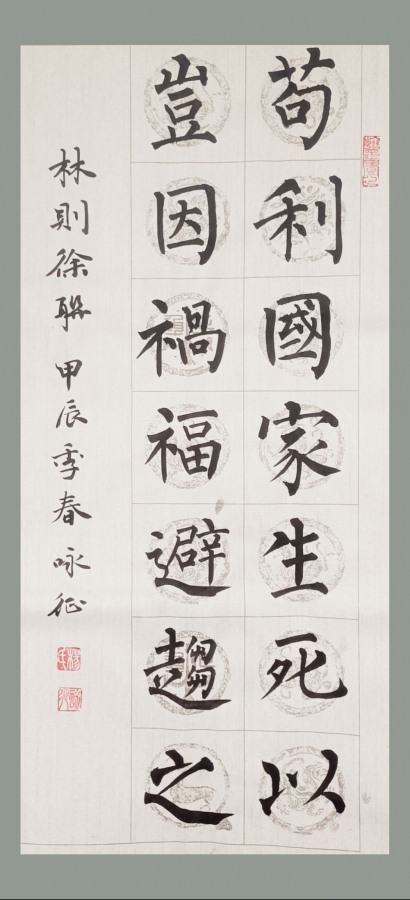 苟利國家生死以
豈因禍福避趨之
林則徐聯 甲辰季春 咏征